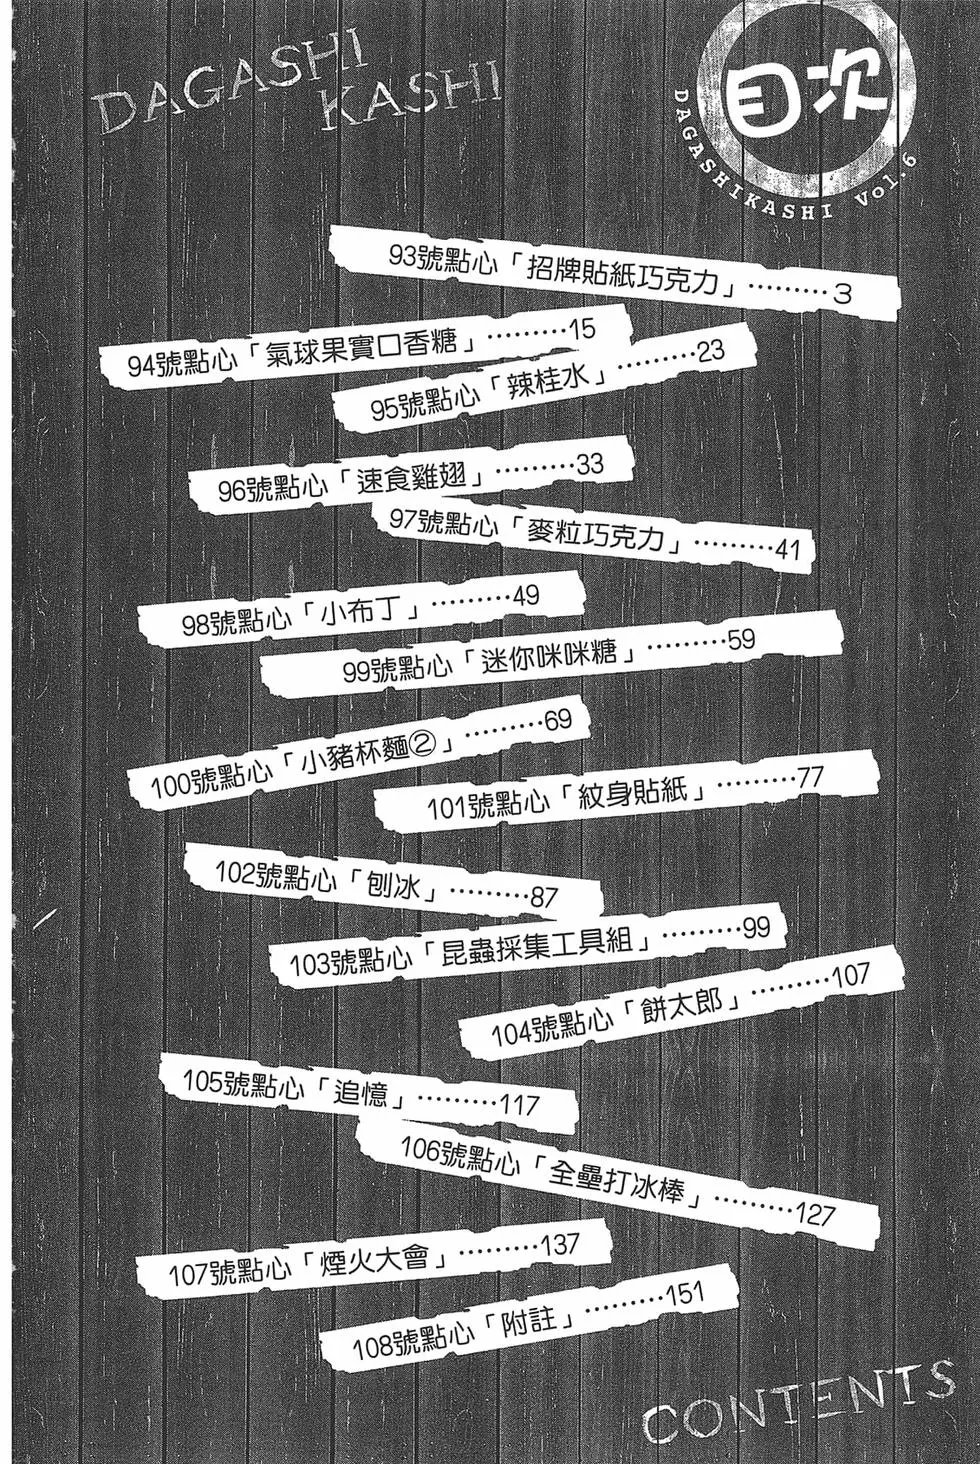 DAGASHI
KASHI
目次
DAGASHIKASHI Vol.6
93號點心「招牌貼紙巧克力」………3
94號點心「氣球果實口香糖」………15
95號點心「辣桂水」………23
96號點心「速食雞翅」………33
97號點心「麥粒巧克力」………41
98號點心「小布丁」………49
99號點心「迷你咪咪糖」………59
100號點心「小豬杯麵②」………69
101號點心「紋身貼紙」………77
102號點心「刨冰」………87
103號點心「昆蟲採集工具組」………99
104號點心「餅太郎」………107
105號點心「追憶」………117
106號點心「全壘打冰棒」………127
107號點心「煙火大會」………137
108號點心「附註」………151
CONTENTS